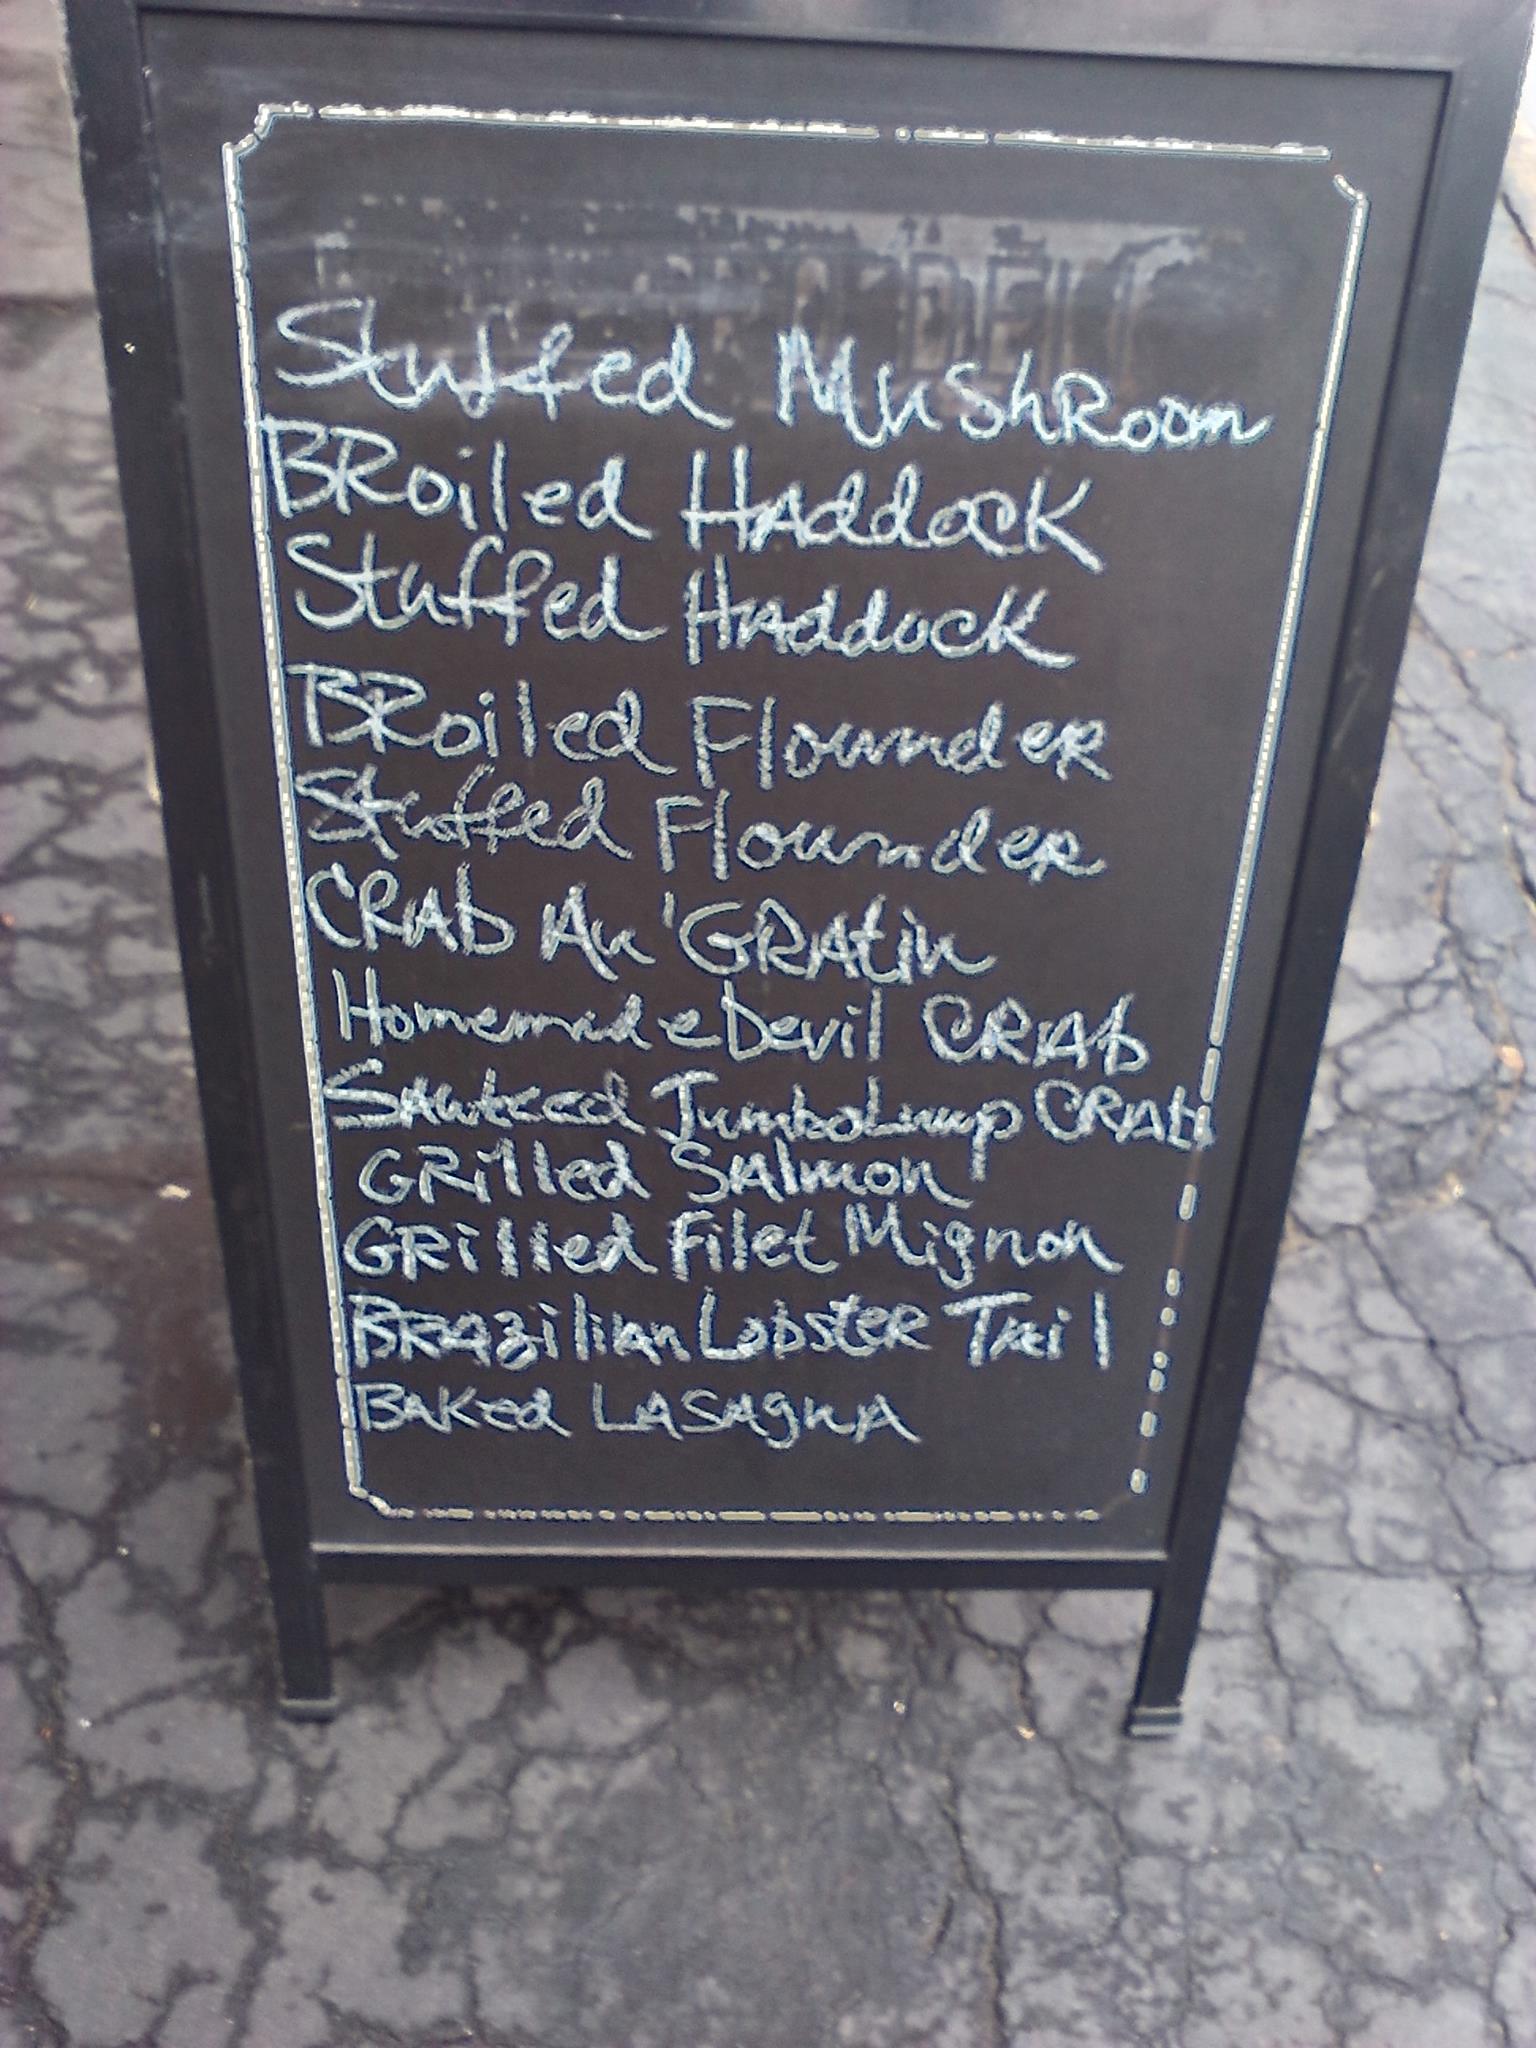 Stuffed MushRoom
BRoiled HAddock
Stuffed HAddock
BRoiled FloundeR
Stuffed FloundeR
CRAb Au 'GRAtin
Homemade Devil CRAb
SAuteed Jumbo Lump CRAb
GRilled SAlmon
GRilled Filet Mignon
BRAzilian LobsteR Tail
BAKed LASAgnA